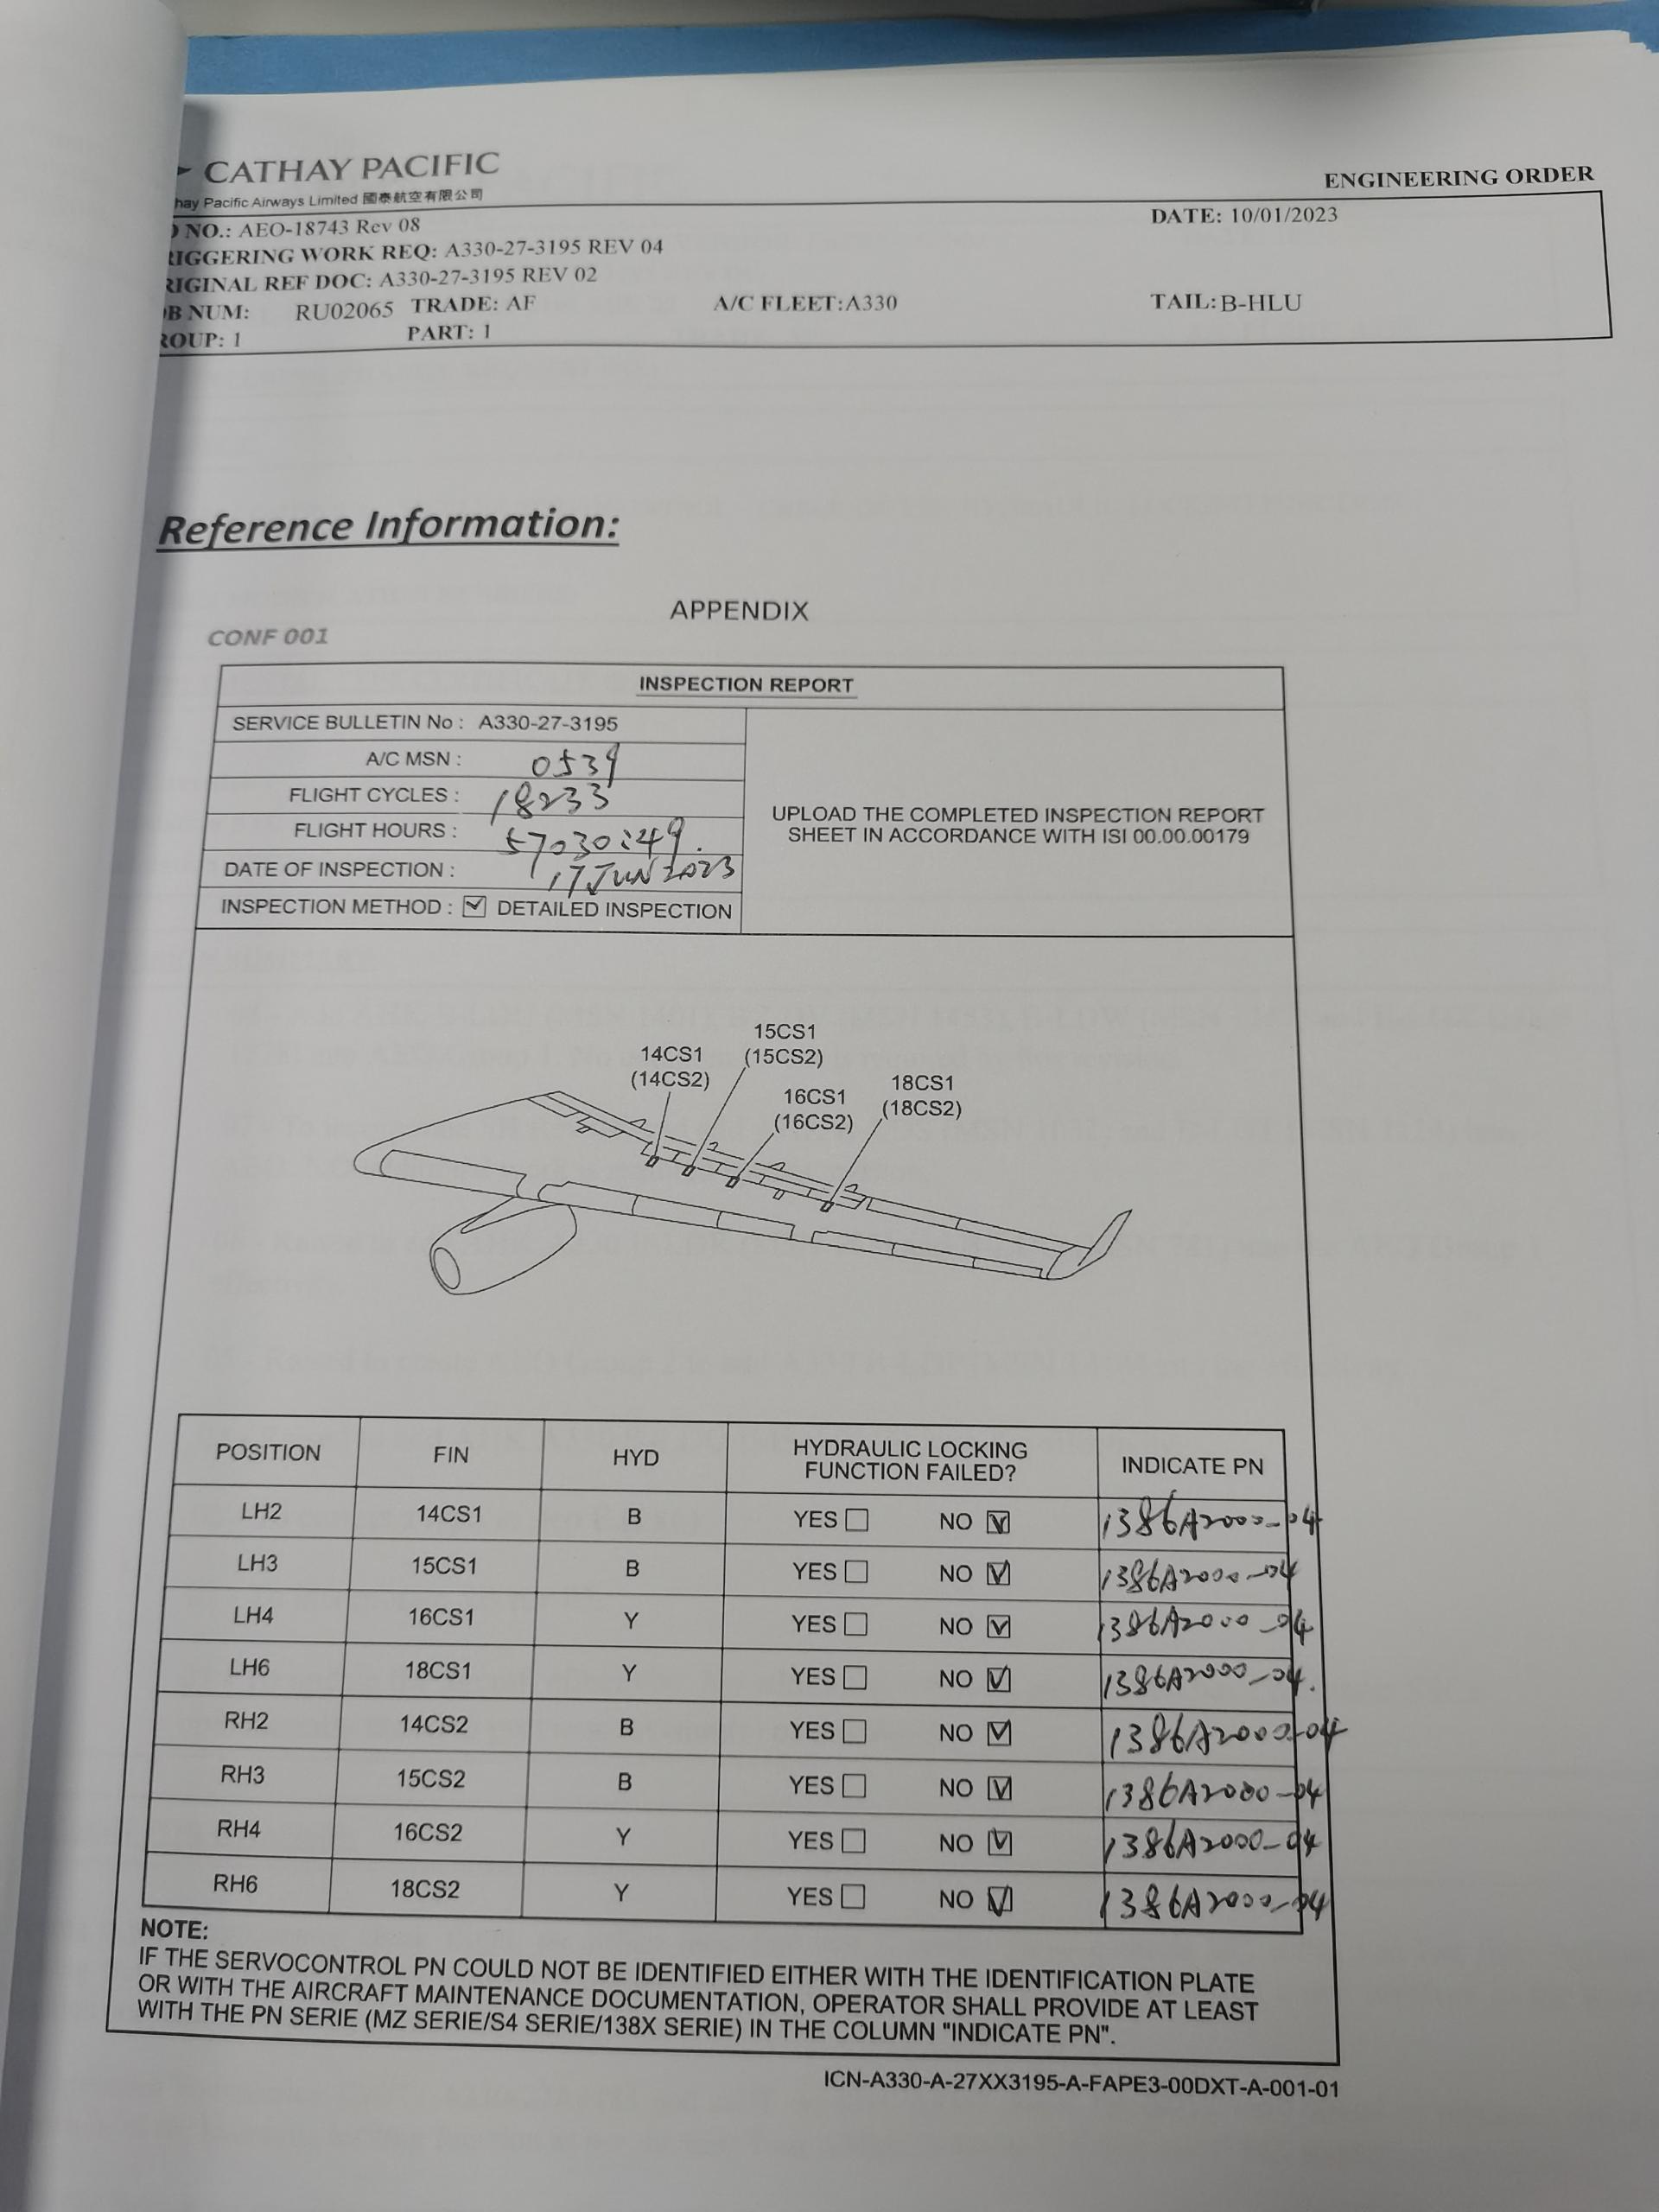 CATHAY PACIFIC
hay Pacific Airways Limited 國泰航空有限公司
ENGINEERING ORDER
NO.: AEO-18743 Rev 08
DATE: 10/01/2023
RIGGERING WORK REQ: A330-27-3195 REV 04
RIGINAL REF DOC: A330-27-3195 REV 02
B NUM: RU02065 TRADE: AF A/C FLEET:A330 TAIL:B-HLU
ROUP: 1 PART: 1
Reference Information:
APPENDIX
CONF 001
INSPECTION REPORT
SERVICE BULLETIN No : A330-27-3195
A/C MSN : 0539
FLIGHT CYCLES : 18233
FLIGHT HOURS : 57030:49.
DATE OF INSPECTION : 17 JUN 2023
INSPECTION METHOD : DETAILED INSPECTION
UPLOAD THE COMPLETED INSPECTION REPORT
SHEET IN ACCORDANCE WITH ISI 00.00.00179
14CS1
(14CS2)
15CS1
(15CS2)
16CS1
(16CS2)
18CS1
(18CS2)
POSITION FIN HYD HYDRAULIC LOCKING FUNCTION FAILED? INDICATE PN
LH2 14CS1 B YES NO 1386A2000-04
LH3 15CS1 B YES NO 1386A2000-04
LH4 16CS1 Y YES NO 1386A2000-04
LH6 18CS1 Y YES NO 1386A2000-04.
RH2 14CS2 B YES NO 1386A2000-04
RH3 15CS2 B YES NO 1386A2000-04
RH4 16CS2 Y YES NO 1386A2000-04
RH6 18CS2 Y YES NO 1386A2000-04
NOTE:
IF THE SERVOCONTROL PN COULD NOT BE IDENTIFIED EITHER WITH THE IDENTIFICATION PLATE
OR WITH THE AIRCRAFT MAINTENANCE DOCUMENTATION, OPERATOR SHALL PROVIDE AT LEAST
WITH THE PN SERIE (MZ SERIE/S4 SERIE/138X SERIE) IN THE COLUMN "INDICATE PN".
ICN-A330-A-27XX3195-A-FAPE3-00DXT-A-001-01